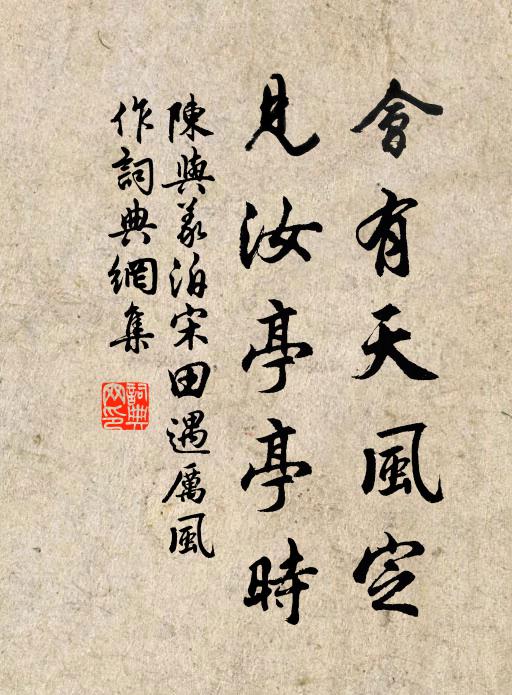 會有天風定
見汝亭亭時
陳與義泊宋田遇厲風
作詞典網集
詞典
网印